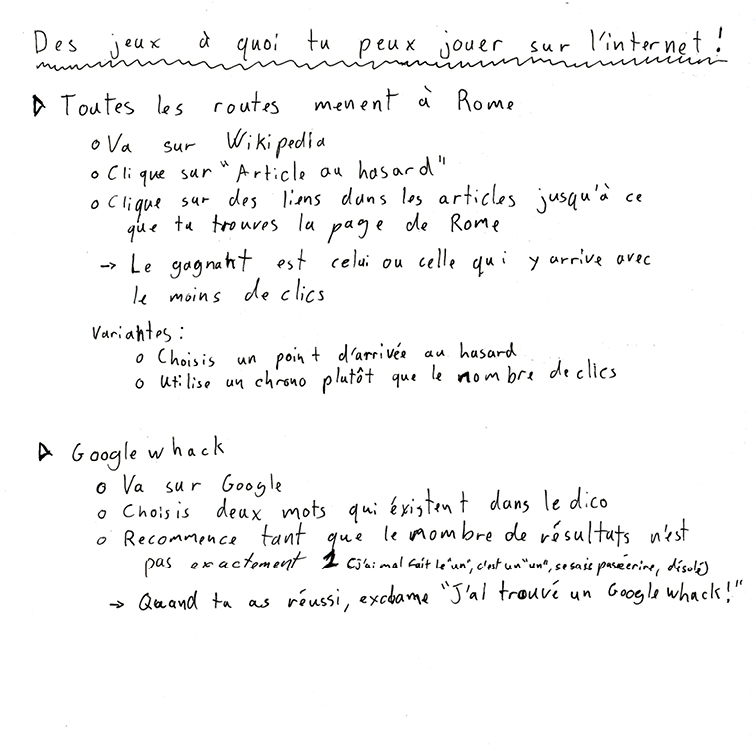 Des jeux à quoi tu peux jouer sur l'internet!
Toutes les routes menent à Rome
Va sur Wikipedia
Clique sur "Article au hasard"
Clique sur des liens dans les articles jusqu'à ce
que tu trouves la page de Rome
→ Le gagnant est celui ou celle qui y arrive avec
le moins de clics
Variantes:
o Choisis un point d'arrivée au hasard
o Utilise un chrono plutôt que le nombre de clics
Google whack
o Va sur Google
o Choisis deux mots qui éxistent dans le dico
o Recommence tant que le nombre de résultats n'est
pas exactement 1 (j'ai mal fait le "un", c'est un "un", se sais pas écrire, désolé)
→ Quand tu as réussi, exclame "J'ai trouvé un Google whack!"